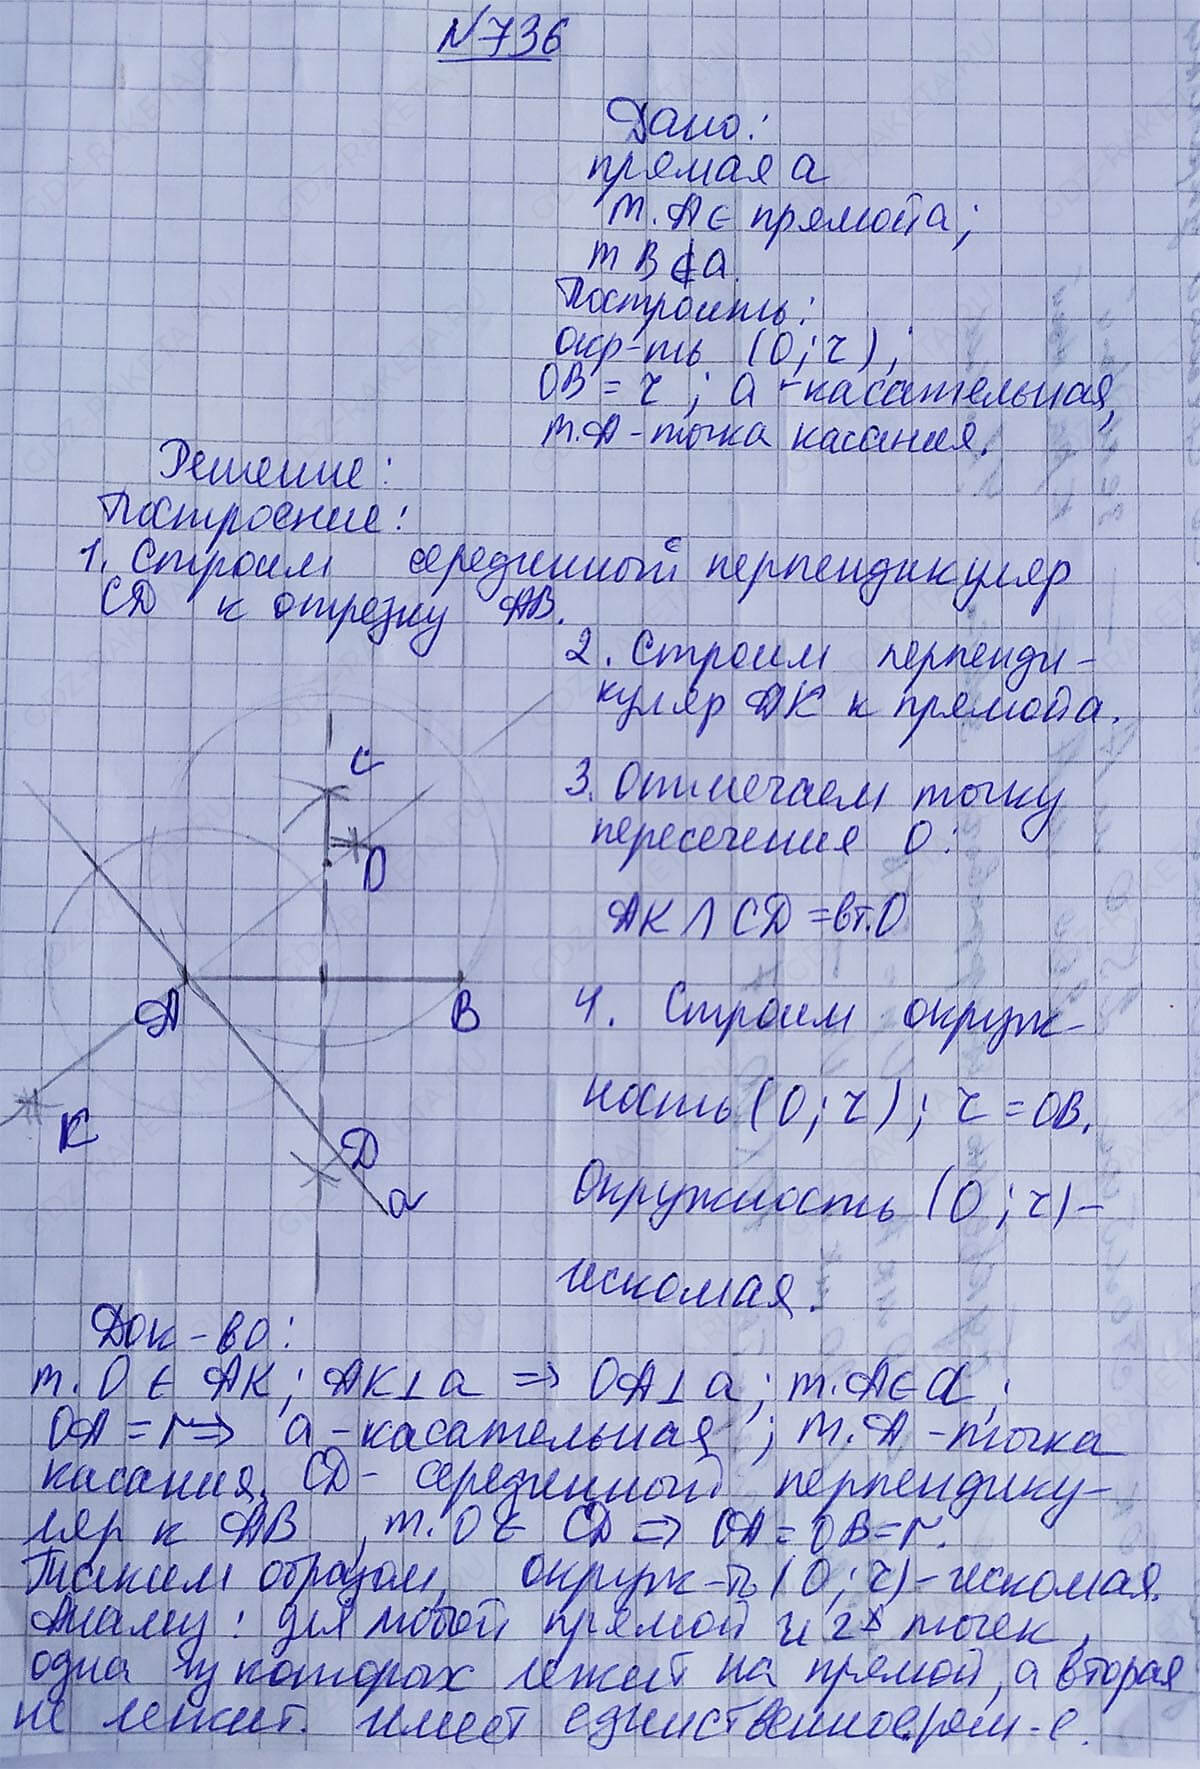 №736
Дано:
прямая a
т. A ∈ прямой a;
т B ∉ a.
Построить:
окр-ть (O; r);
OB = r; a - касательная,
т. A - точка касания.
Решение:
Построение:
1. Строим серединный перпендикуляр
CD к отрезку AB.
2. Строим перпенди-
куляр AK к прямой a.
3. Отмечаем точку
пересечения O:
AK ∩ CD = в т. O
4. Строим окруж-
ность (O; r); r = OB.
Окружность (O; r) -
искомая.
C
O
A
B
K
D
a
Док-во:
т. O ∈ AK; AK ⊥ a ⇒ OA ⊥ a; т. A ∈ a;
OA = r ⇒ a - касательная; т. A - точка
касания. CD - серединный перпендику-
ляр к AB, т. O ∈ CD ⇒ OA = OB = r.
Таким образом, окруж-ть (O; r) - искомая.
для любой прямой и 2х точек,
одна из которых лежит на прямой, а вторая
не лежит. имеет единственное реш-е.